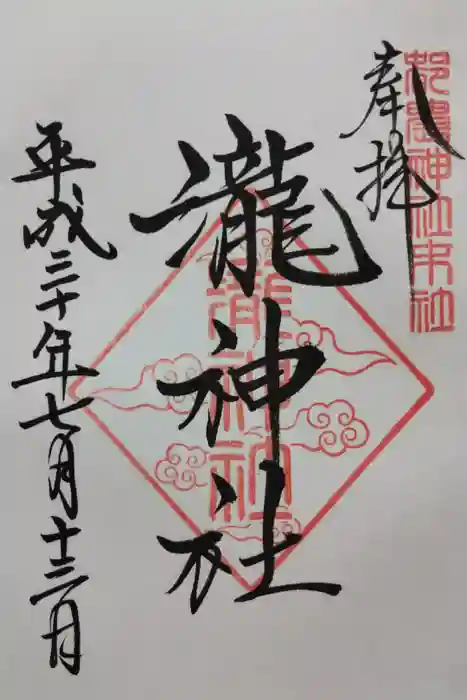 都農神社末社
奉拝
瀧神社
瀧神社
平成三十年七月十三日